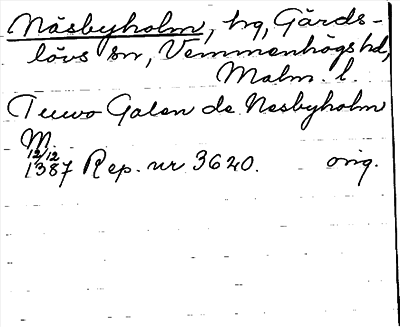 Näsbyholm, hg, Gärds-
lövs sn, Vemmenhögs hd,
Malm. l.
Tuvo Galen de Nesbyholm
M.
12/12
1387 Rep. nr 3620. orig.